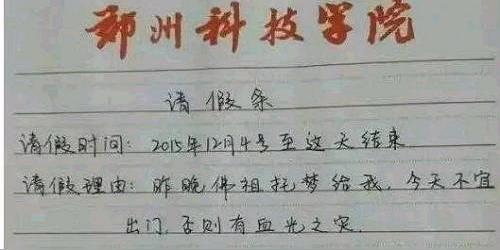 郑州科技学院
请假条
请假时间：2015年12月4号至这天结束
请假理由：昨晚佛祖托梦给我，今天不宜
出门，否则有血光之灾.